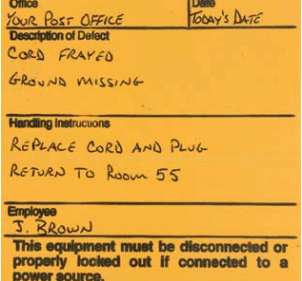 Office Date
YOUR POST OFFICE TODAY'S DATE
Description of Defect
CORD FRAYED
GROUND MISSING
Handling Instructions
REPLACE CORD AND PLUG
RETURN TO ROOM 55
Employee
J. BROWN
This equipment must be disconnected or
properly locked out if connected to a
power source.